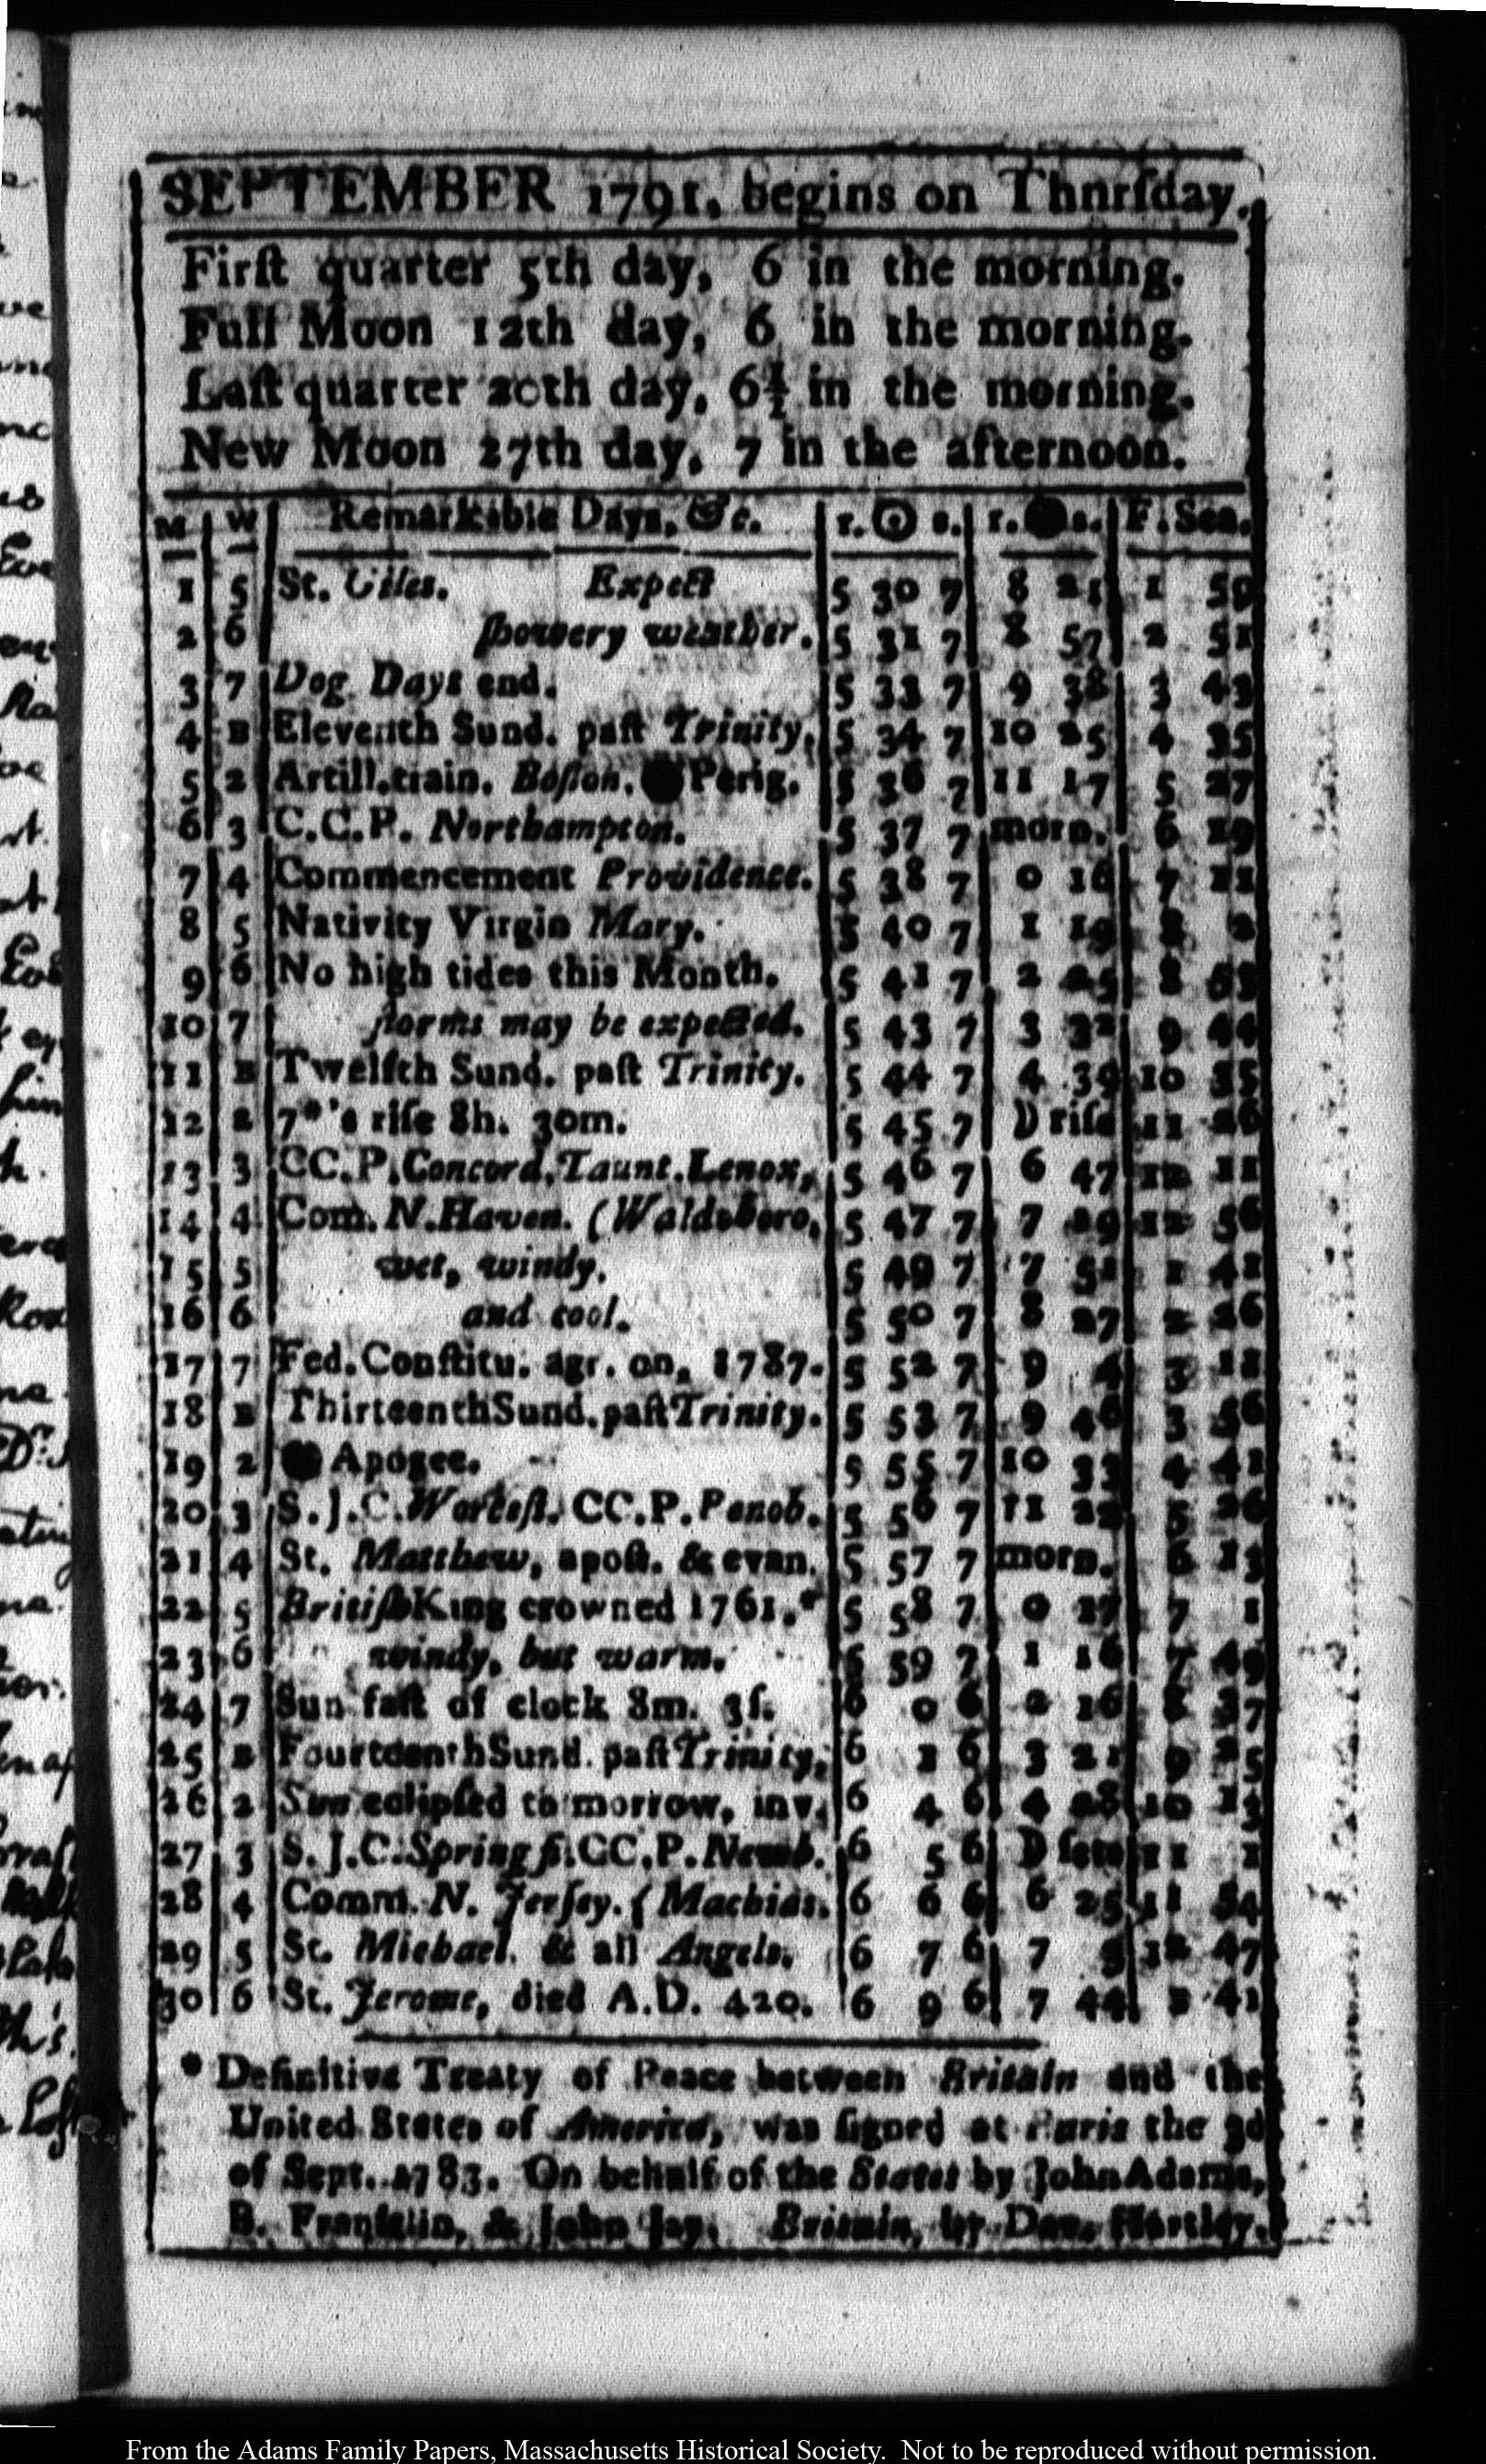 SEPTEMBER 1791, begins on Thnrſday.
Firſt quarter 5th day, 6 in the morning.
Full Moon 12th day, 6 in the morning.
Laſt quarter 20th day, 6½ in the morning.
New Moon 27th day, 7 in the afternoon.
M W Remarkable Days, &c. r. ☉ s. r. ● s. F. Sea.
1 5 St. Giles. Expect 5 30 7 8 21 1 59
2 6 ſhowery weather. 5 31 7 8 57 2 51
3 7 Dog Days end. 5 33 7 9 38 3 43
4 B Eleventh Sund. paſt Trinity. 5 34 7 10 25 4 35
5 2 Artill. train. Boſton. ● Perig. 5 36 7 11 17 5 27
6 3 C.C.P. Northampton. 5 37 7 morn. 6 19
7 4 Commencement Providence. 5 38 7 0 16 7 11
8 5 Nativity Virgin Mary. 5 40 7 1 19 8 2
9 6 No high tides this Month. 5 41 7 2 25 8 53
10 7 ſtorms may be expected. 5 43 7 3 32 9 44
11 B Twelfth Sund. paſt Trinity. 5 44 7 4 39 10 35
12 2 7*'s riſe 8h. 30m. 5 45 7 ☽ riſe 11 26
13 3 CC.P. Concord, Taunt. Lenox, 5 46 7 6 47 12 11
14 4 Com. N. Haven. (Waldoboro, 5 47 7 7 19 12 56
15 5 wet, windy, 5 49 7 7 51 1 41
16 6 and cool. 5 50 7 8 27 2 26
17 7 Fed. Conſtitu. agr. on, 1787. 5 52 7 9 4 3 11
18 B Thirteenth Sund. paſt Trinity. 5 53 7 9 46 3 56
19 2 ● Apogee. 5 55 7 10 33 4 41
20 3 S.J.C. Worceſt. CC.P. Penob. 5 56 7 11 22 5 26
21 4 St. Matthew, apoſt. & evan. 5 57 7 morn. 6 13
22 5 Britiſh King crowned 1761.* 5 58 7 0 17 7 1
23 6 windy, but warm. 5 59 7 1 16 7 49
24 7 Sun faſt of clock 8m. 3ſ. 6 0 6 2 16 8 37
25 B Fourteenth Sund. paſt Trinity, 6 1 6 3 21 9 25
26 2 Sun eclipſed to morrow, inv. 6 4 6 4 28 10 13
27 3 S.J.C. Springf. CC.P. Newb. 6 5 6 ☽ ſets 11 1
28 4 Comm. N. Jerſey. (Machias. 6 6 6 6 25 11 54
29 5 St. Michael. & all Angels. 6 7 6 7 3 12 47
30 6 St. Jerome, died A.D. 420. 6 9 6 7 44 1 41
* Definitive Treaty of Peace between Britain and the
United States of America, was ſigned at Paris the 3d
of Sept. 1783. On behalf of the States by John Adams,
B. Franklin, & John Jay. Britain, by Dav. Hartley.
From the Adams Family Papers, Massachusetts Historical Society. Not to be reproduced without permission.